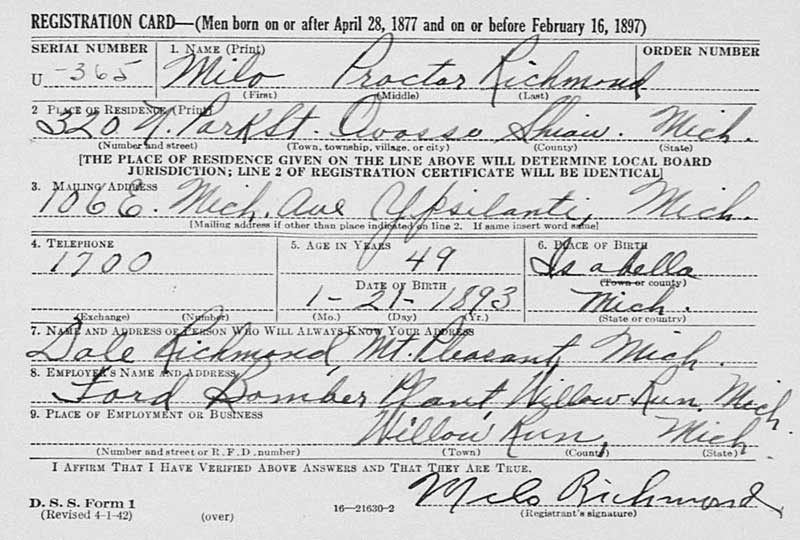 REGISTRATION CARD—(Men born on or after April 28, 1877 and on or before February 16, 1897)
SERIAL NUMBER 1. NAME (Print) ORDER NUMBER
U -365 Milo Proctor Richmond
(First) (Middle) (Last)
2 PLACE OF RESIDENCE (Print)
320 N. Park St. Owosso Shiaw. Mich.
(Number and street) (Town, township, village, or city) (County) (State)
[THE PLACE OF RESIDENCE GIVEN ON THE LINE ABOVE WILL DETERMINE LOCAL BOARD
JURISDICTION; LINE 2 OF REGISTRATION CERTIFICATE WILL BE IDENTICAL]
3. MAILING ADDRESS
106 E. Mich. Ave Ypsilanti, Mich.
[Mailing address if other than place indicated on line 2. If same insert word same]
4. TELEPHONE 5. AGE IN YEARS 6. PLACE OF BIRTH
1700 49 Isabella
DATE OF BIRTH (Town or county)
1-21-1893 Mich.
(Exchange) (Number) (Mo.) (Day) (Yr.) (State or country)
7. NAME AND ADDRESS OF PERSON WHO WILL ALWAYS KNOW YOUR ADDRESS
Dale Richmond, Mt. Pleasant, Mich.
8. EMPLOYER'S NAME AND ADDRESS
Ford Bomber Plant, Willow Run, Mich.
9. PLACE OF EMPLOYMENT OR BUSINESS
Willow Run, Mich
(Number and street or R. F. D. number) (Town) (County) (State)
I AFFIRM THAT I HAVE VERIFIED ABOVE ANSWERS AND THAT THEY ARE TRUE.
Milo Richmond
D. S. S. Form 1
(Revised 4-1-42) (over) 16—21630-2 (Registrant's signature)